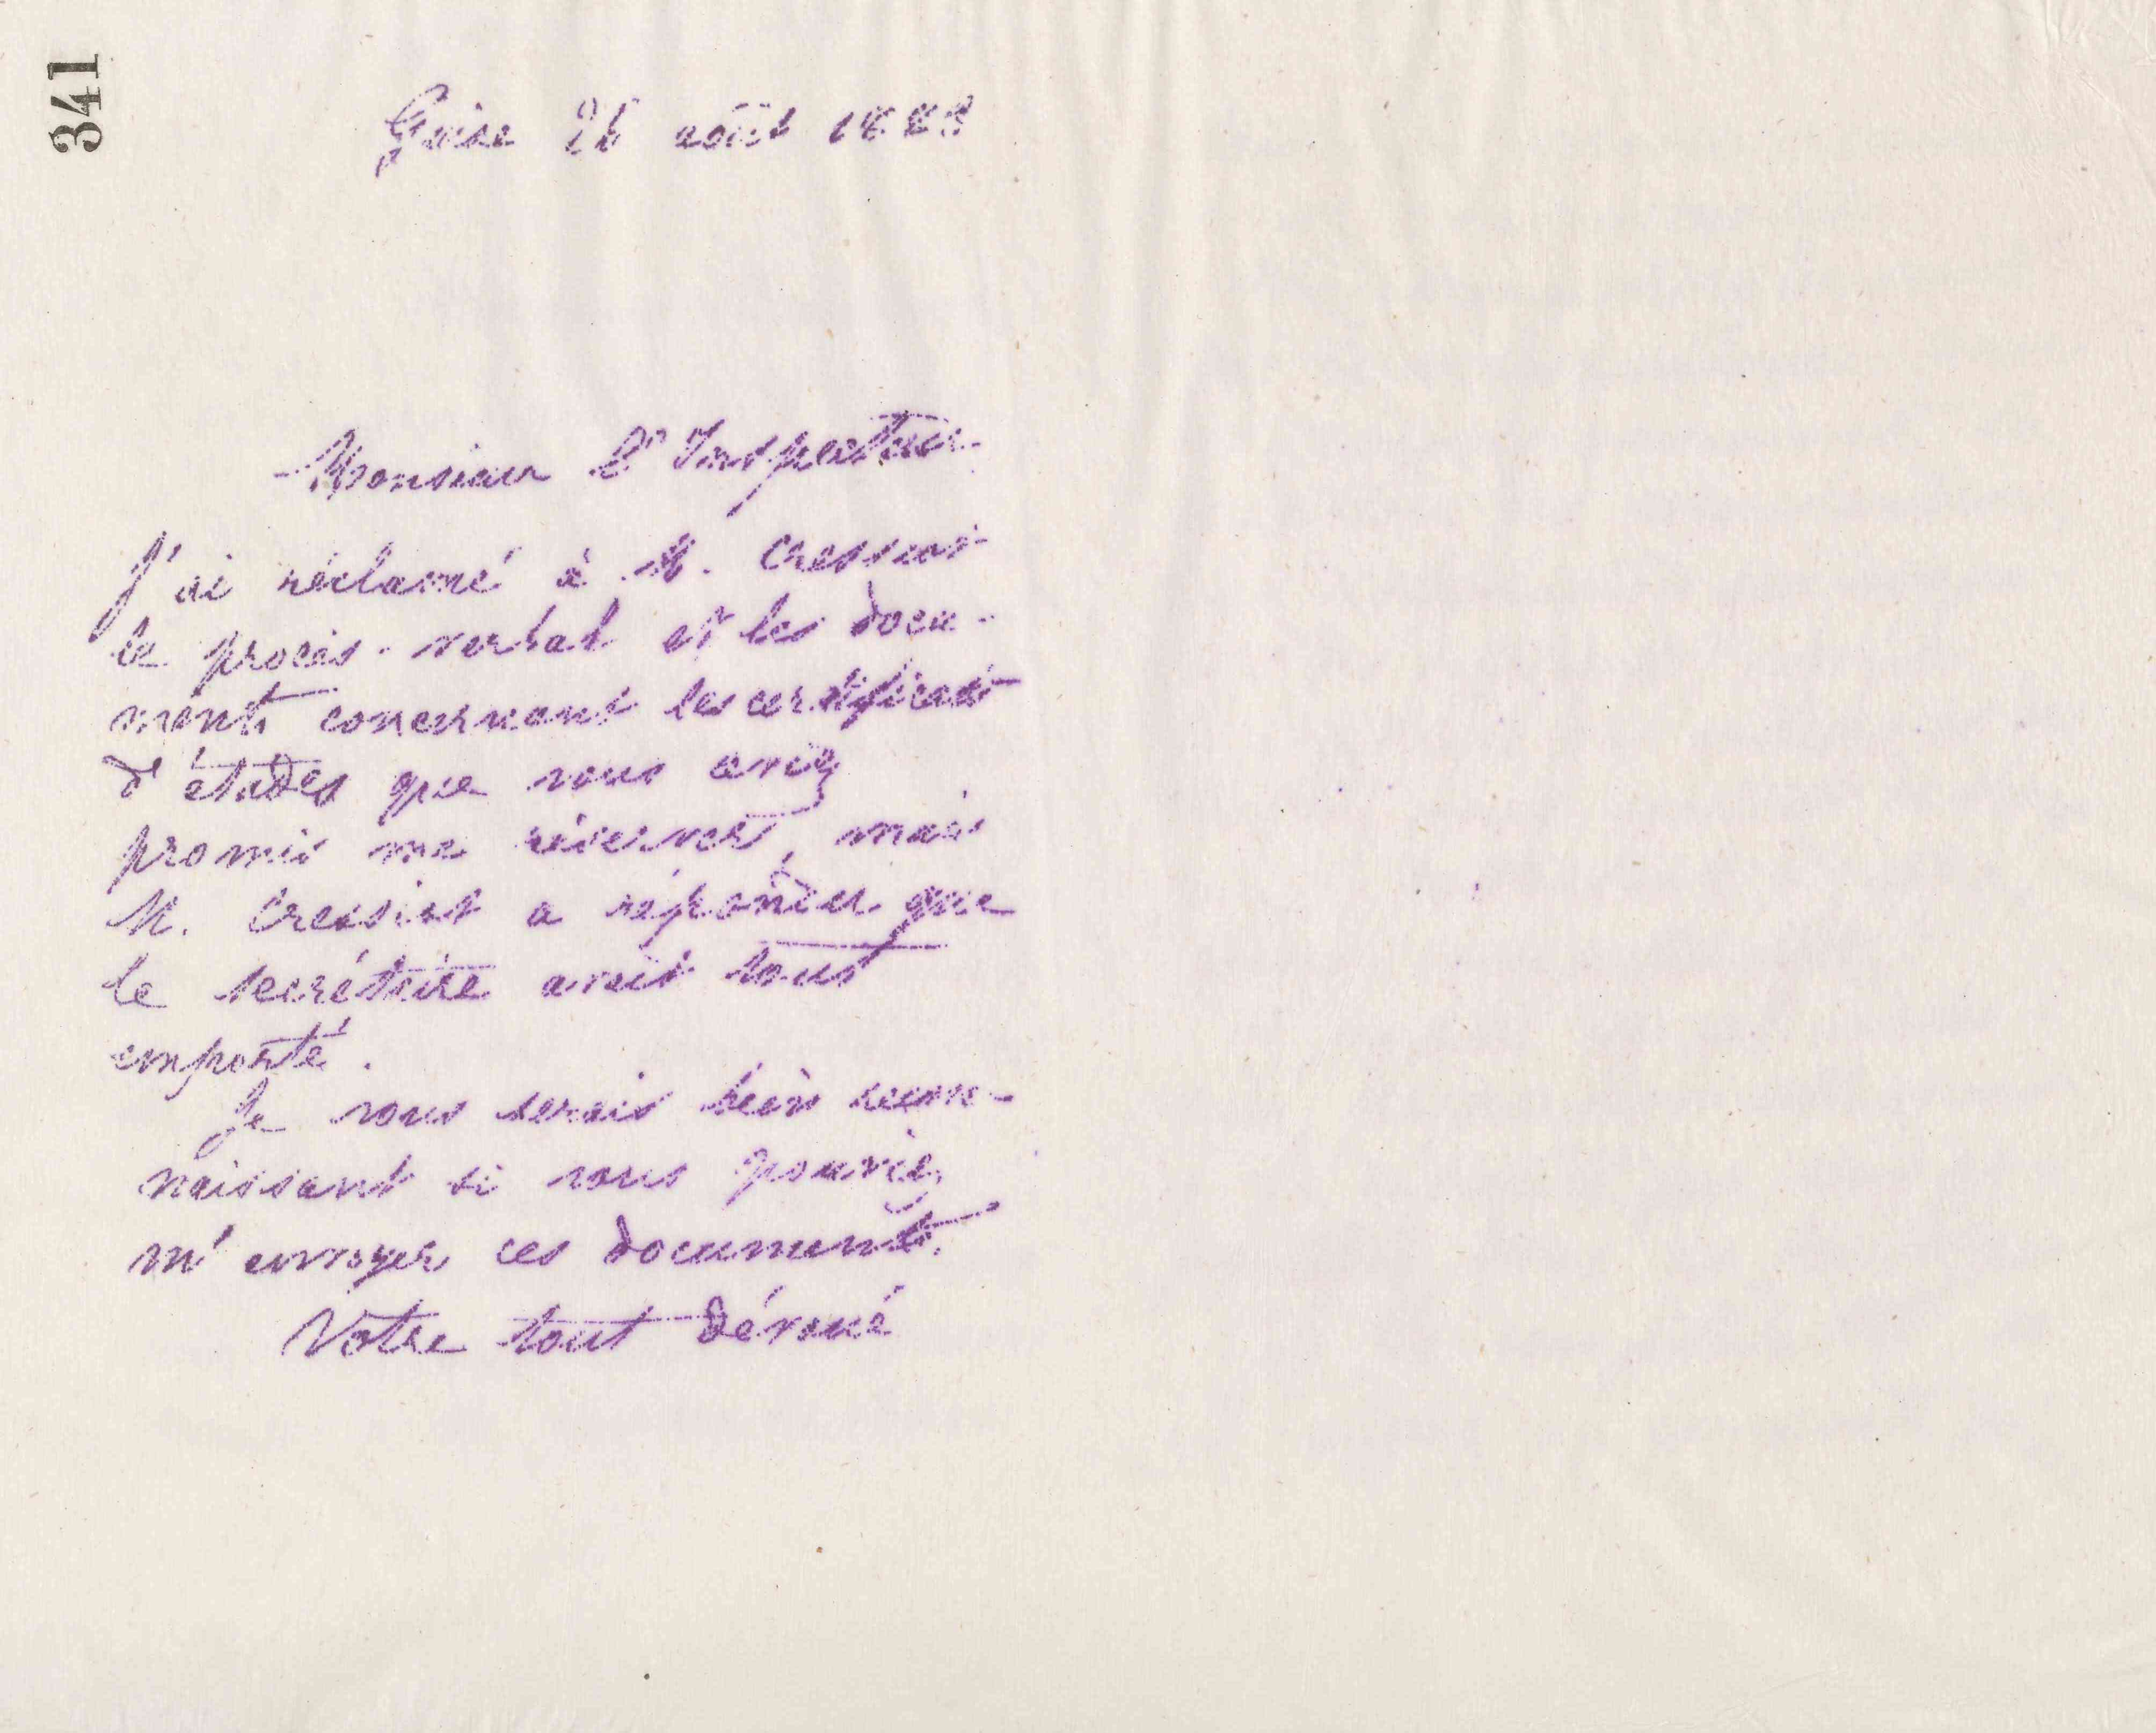 341
Guise 26 août 1883
Monsieur l'Inspecteur
J'ai réclamé à M. Cressier
le procès-verbal et les docu-
ments concernant les certificats
d'études que vous aviez
promis me réserver, mais
M. a répondu que
le secrétaire avait tout
emporté.
Je vous serais bien recon-
naissant si vous pouviez
m'envoyer ces documents.
Votre tout dévoué